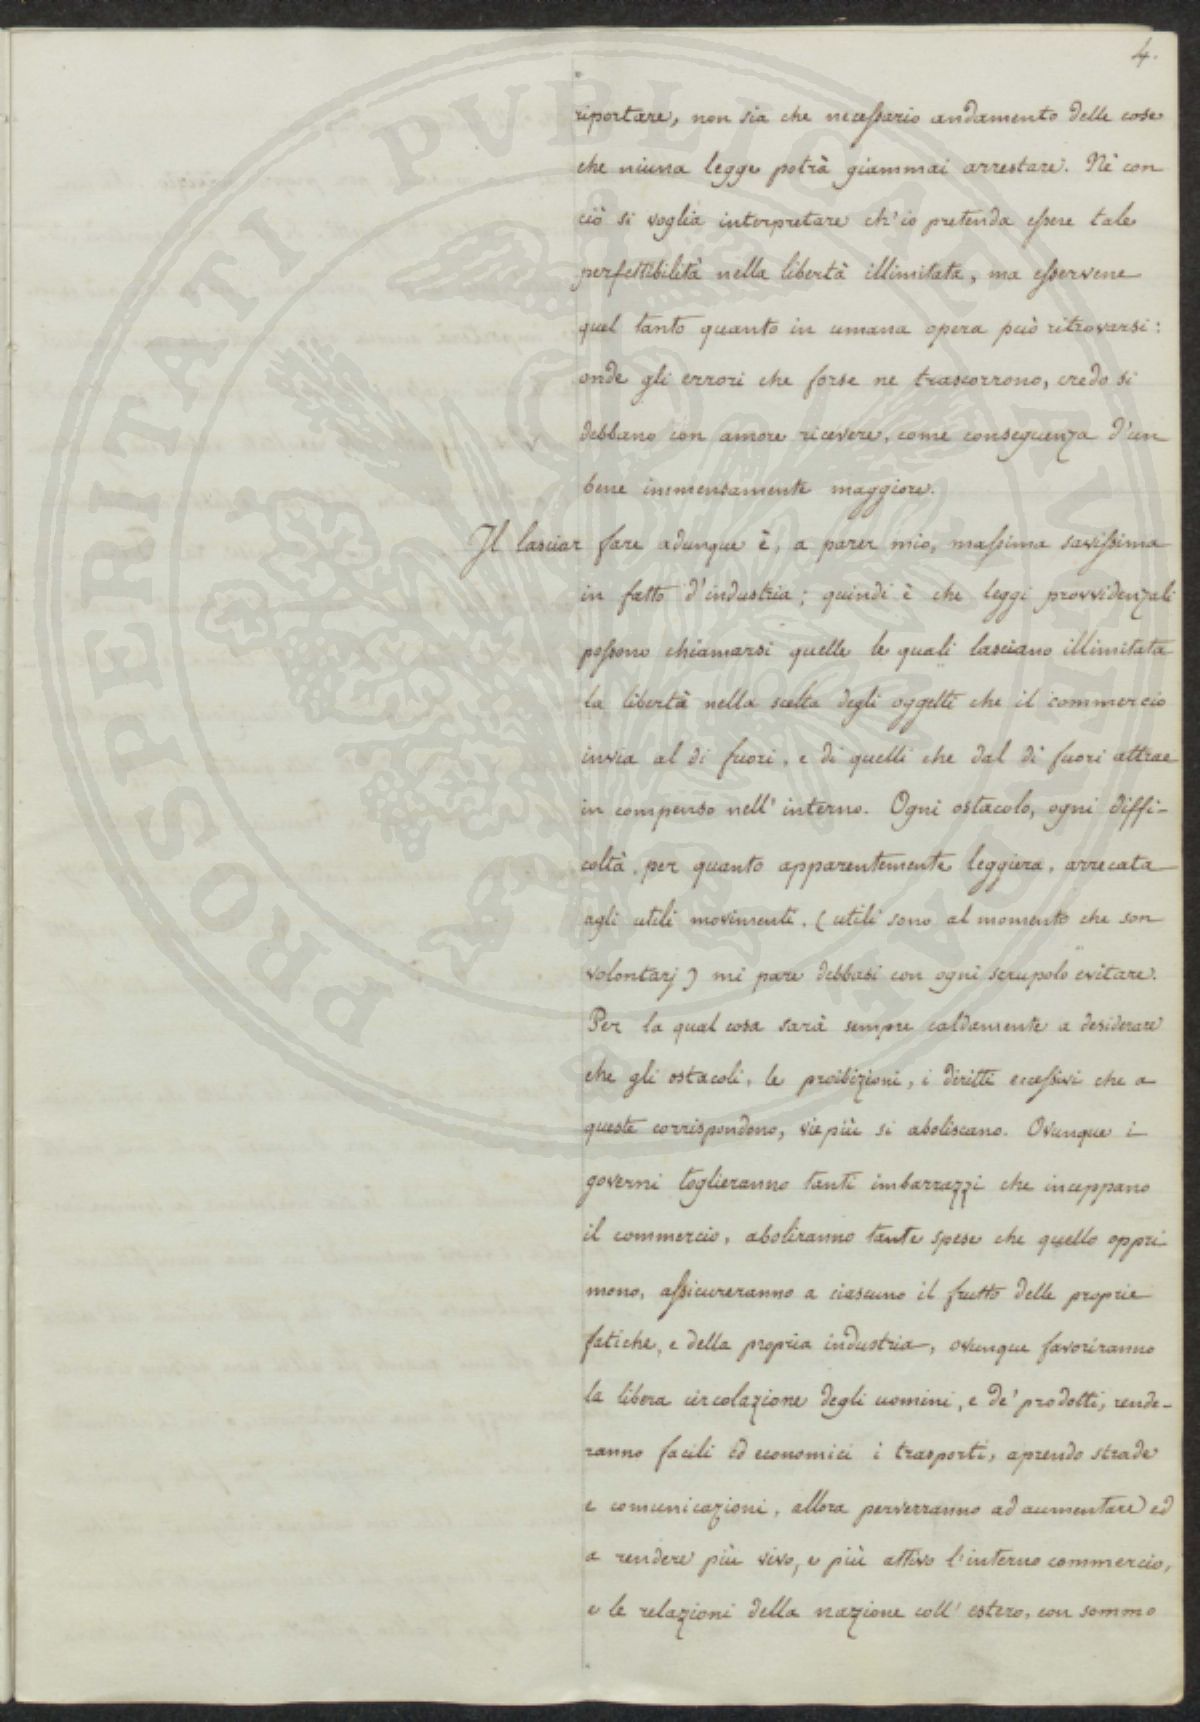 4.
riportare, non sia che necessario andamento delle cose
che niuna legge potrà giammai arrestare. Nè con
ciò si voglia interpretare ch'io pretenda essere tale
perfettibilità nella libertà illimitata, ma esservene
quel tanto quanto in umana opera può ritrovarsi:
onde gli errori che forse ne trascorrono, credo si
debbano con amore ricevere, come conseguenza d'un
bene immensamente maggiore.
Il lasciar fare adunque è, a parer mio, massima savissima
in fatto d'industria; quindi è che leggi provvidenzali
possono chiamarsi quelle le quali lasciano illimitata
la libertà nella scelta degli oggetti che il commercio
invia al di fuori, e di quelli che dal di fuori attrae
in compenso nell'interno. Ogni ostacolo, ogni diffi-
coltà, per quanto apparentemente leggiera, arrecata
agli utili movimenti, (utili sono al momento che son
volontarj) mi pare debbasi con ogni scrupolo evitare.
Per la qual cosa sarà sempre caldamente a desiderare
che gli ostacoli, le proibizioni, i diritti eccessivi che a
queste corrispondono, vie più si aboliscano. Ovunque i
governi toglieranno tanti imbarrazzi che inceppano
il commercio, aboliranno tante spese che quello oppri
mono, assicureranno a ciascuno il frutto delle proprie
fatiche, e della propria industria, ovunque favoriranno
la libera circolazione degli uomini, e de' prodotti, rende-
ranno facili ed economici i trasporti, aprendo strade
e comunicazioni, allora perverranno ad aumentare ed
a rendere più vivo, e più attivo l'interno commercio,
e le relazioni della nazione coll'estero, con sommo
PROSPERITATI PVBLICAE AVGENDAE